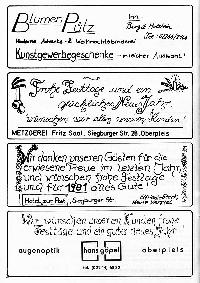 Blumen Pölz
Inh. Birgit
Moderne Advents- & Weihnachtsbinderei
Kunstgewerbegeschenke
in reicher Auswahl!
Frohe Festtage und ein
glückliches Neues Jahr
wünschen wir allen unseren Kunden
METZGEREI Fritz Saal, Siegburger Str. 28, Oberpleis
Wir danken unseren Gästen für die
erwiesene Treue im letzten Jahr,
und wünschen frohe Festtage
und für 1981 alles Gute!
Hotel zur Post, Siegburger Str.
Wir wünschen unseren Kunden frohe
Festtage und ein gutes neues Jahr
augenoptik hans göpel oberpleis